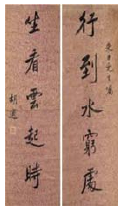 行到水窮處
坐看雲起時
胡適